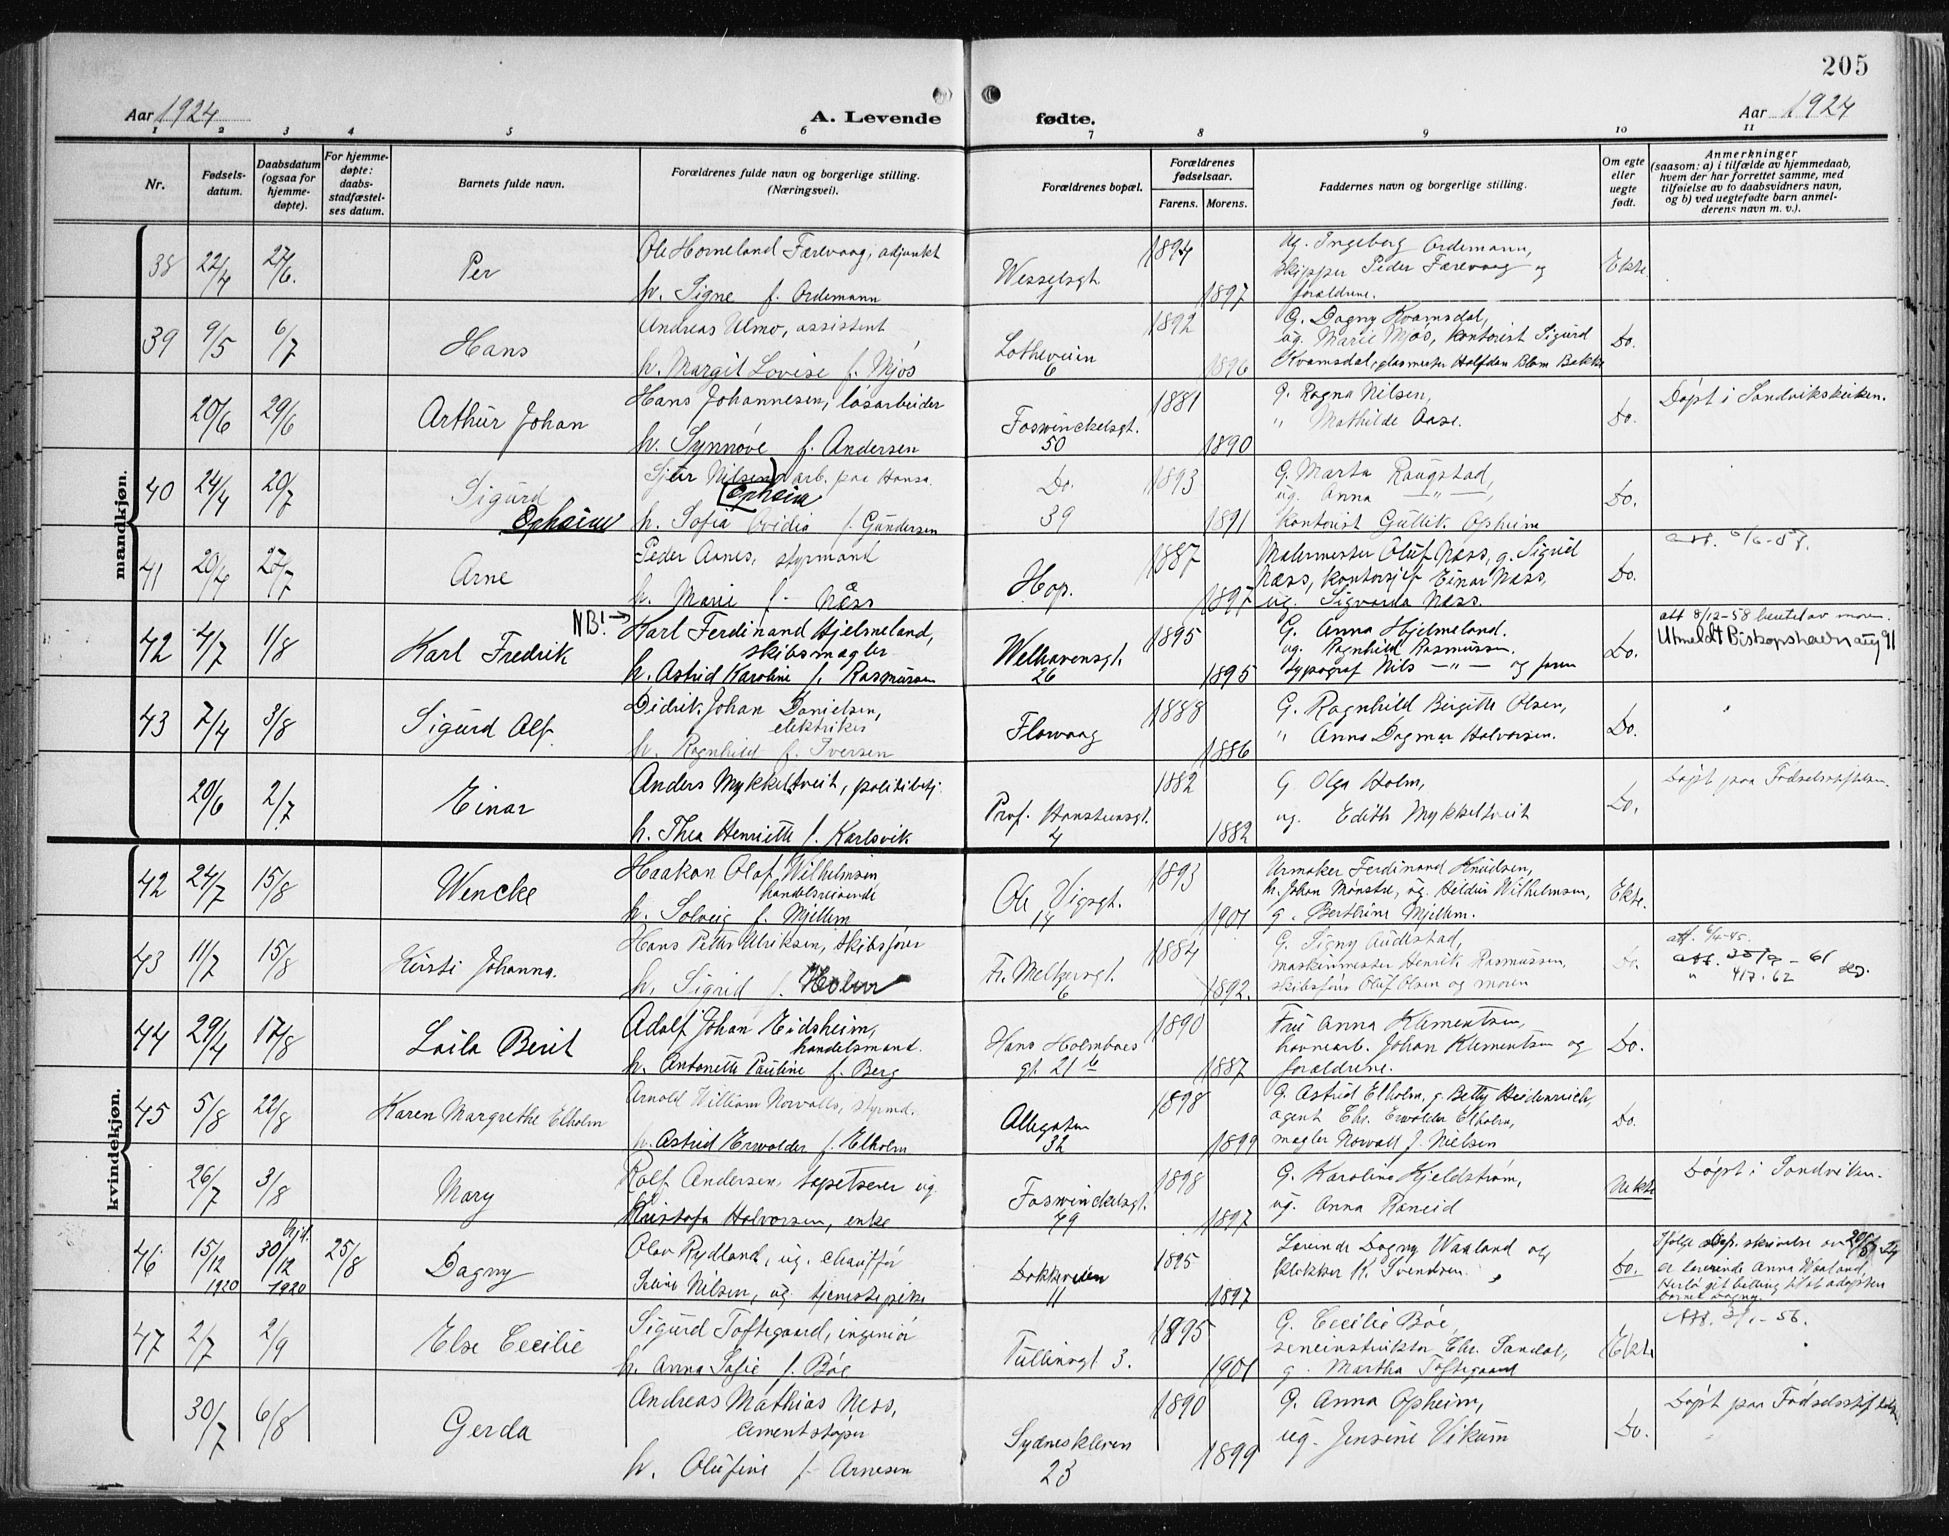 205
Aar 1924
A. Levende
fødte.
Aar 1924
1 2 3 4 5 6 7 8 9 10 11
Nr.
Fødsels-
datum.
Daabsdatum
(ogsaa for
hjemme-
døpte).
For hjemme-
døpte:
daabs-
stadfæstel-
ses datum.
Barnets fulde navn.
Forældrenes fulde navn og borgerlige stilling.
(Næringsvei).
Forældrenes bopæl.
Forældrenes
fødselsaar.
Farens. Morens.
Faddernes navn og borgerlige stilling.
Om egte
eller
uegte
født.
Anmerkninger
(saasom: a) i tilfælde av hjemmedaab,
hvem der har forrettet samme, med
tilføielse av to daabsvidners navn,
og b) ved uegtefødte barn anmel-
derens navn m. v.).
mandkjøn.
38 22/4 27/6. Per
Ole Horneland Færevaag, adjunkt
h. Signe f. Ordemann
Wesselsgt.
1894
1897
Ug. Ingeborg Ordemann,
skipper Peder Færevaag og
forældrene.
Ekte
39 9/5 6/7 Hans
Andreas Ulmo, assistent
h. Margit Lovise f. Mjøs
Lotheveien
6
1892
1896
G. Dagny Kvamsdal,
ug. Marie Mjøs, kontorist Sigurd
Kvamsdal, glasmester Halfdan Blom Bakke
Do.
20/6 29/6 Arthur Johan
Hans Johannesen, løsarbeider
h. Synnøve f. Andersen
Foswinckelsgt.
50
1881
1890
G. Ragna Nilsen,
" Mathilde Aase.
Do.
Døpt i Sandvikskirken.
40 24/4 20/7 Sigurd
Opheim
Nilsen) arb. paa Hansa.
Opheim
h. Sofia Ovidia f. Gundersen
Do.
39
1893
1891
G. Marta Raugstad,
ug. Anna — " —,
kontorist Gullik Opheim
Do.
41 20/4 27/7 Arne
Peder Aarnes, styrmand
h. Marie f. Næss
Hop.
1887
1897
Malermester Oluf Næss, g. Sigrid
Næss, kontorsjef Einar Næss,
ug. Sigvarda Næss.
Do.
NB! →
42 4/7 1/8 Karl Fredrik
Karl Ferdinand Hjelmeland,
skibsmægler
h. Astrid Karoline f. Rasmussen
Welhavensgt.
26
1895
1895
G. Anna Hjelmeland.
ug. Ragnhild Rasmussen.
typograf Nils — " — og faren
Do.
att 8/12-58 hentet av moren.
Utmeldt Biskopshavn aug 91
43 7/4 3/8 Sigurd Alf.
Didrik Johan Danielsen,
elektriker
h. Ragnhild f. Iversen
Florvaag
1888
1886
G. Ragnhild Birgitte Olsen,
" Anna Dagmar Halvorsen.
Do.
20/6 2/7 Einar
Anders Mykkeltveit, politibetj.
h. Thea Henriette f. Karlsvik
Prof. Hansteensgt.
4
1882
1882
G Olga Holm,
ug. Edith Mykkeltveit
Do.
Døpt paa Fødselsstiftelsen.
kvindekjøn.
42 24/7 15/8 Wencke
Haakon Olaf Wilhelmsen
handelsreisende
h. Solveig f. Mjellem
Ole Vigsgt.
14
1893
1901
Urmaker Ferdinand Knudsen,
h. Johan Mønstre, ug. Heldur Wilhelmsen,
g. Berthine Mjellem.
Ekte.
43 11/7 15/8 Kirsti Johanna.
Hans Petter Ulriksen, skibsfører
h. Sigrid f. Holm
Fr. Meltzersgt.
6
1884
1892.
G. Signy Audestad,
maskinmester Henrik Rasmussen,
skibsfører Oluf Olsen og moren
Do.
44 29/4 17/8 Laila Berit
Adolf Johan Eidsheim,
handelsmand.
h. Antonette Pauline f. Berg
Hans Holmboes
gt 21 b
1890
1887
Fru Anna Klementsen,
havnearb. Johan Klementsen og
forældrene.
Do.
45 5/8 22/8 Karen Margrethe Elholm
Arnold William Norvalls, styrmd.
h. Astrid Erwolder f. Elholm
Allegaten
32
1898
1899
G. Astrid Elholm, g. Betty Heidenreich,
agent Chr. Erwolder Elholm,
megler Norvall J. Nielsen
Do.
26/7 3/8 Mary
Rolf Andersen, tapetserer ug.
Kristofa Halvorsen, enke
Foswinckelsgt.
49
1898
1897
G. Karoline Kjeldstrøm,
ug. Anna Raneid
Uekte
Døpt i Sandviken.
46 15/12 1920 hjd. 30/12 1920 25/8 Dagny
Olav Rydland, ug. chauffør
Nilsen, ug tjenestepike
Dokkeveien
11
1895
1897
Lærerinde Dagny Waaland og
klokker K. Svendsen.
Do.
47 2/7 2/9 Else Cecilie
Sigurd Toftegaard, ingeniør
h. Anna Sofie f. Bøe
Tullinsgt 3.
1895
1901
G. Cecilie Bøe,
Chr. Sandal,
g. Martha Toftegaard
Ekte
30/7 6/8 Gerda
Andreas Mathias Ness,
cementstøper
h. Olufine f. Arnesen
Sydneskleven
23
1890
1899
G. Anna Opheim,
ug. Jensine Vikum
Do.
Døpt paa Fødselsstiftelsen